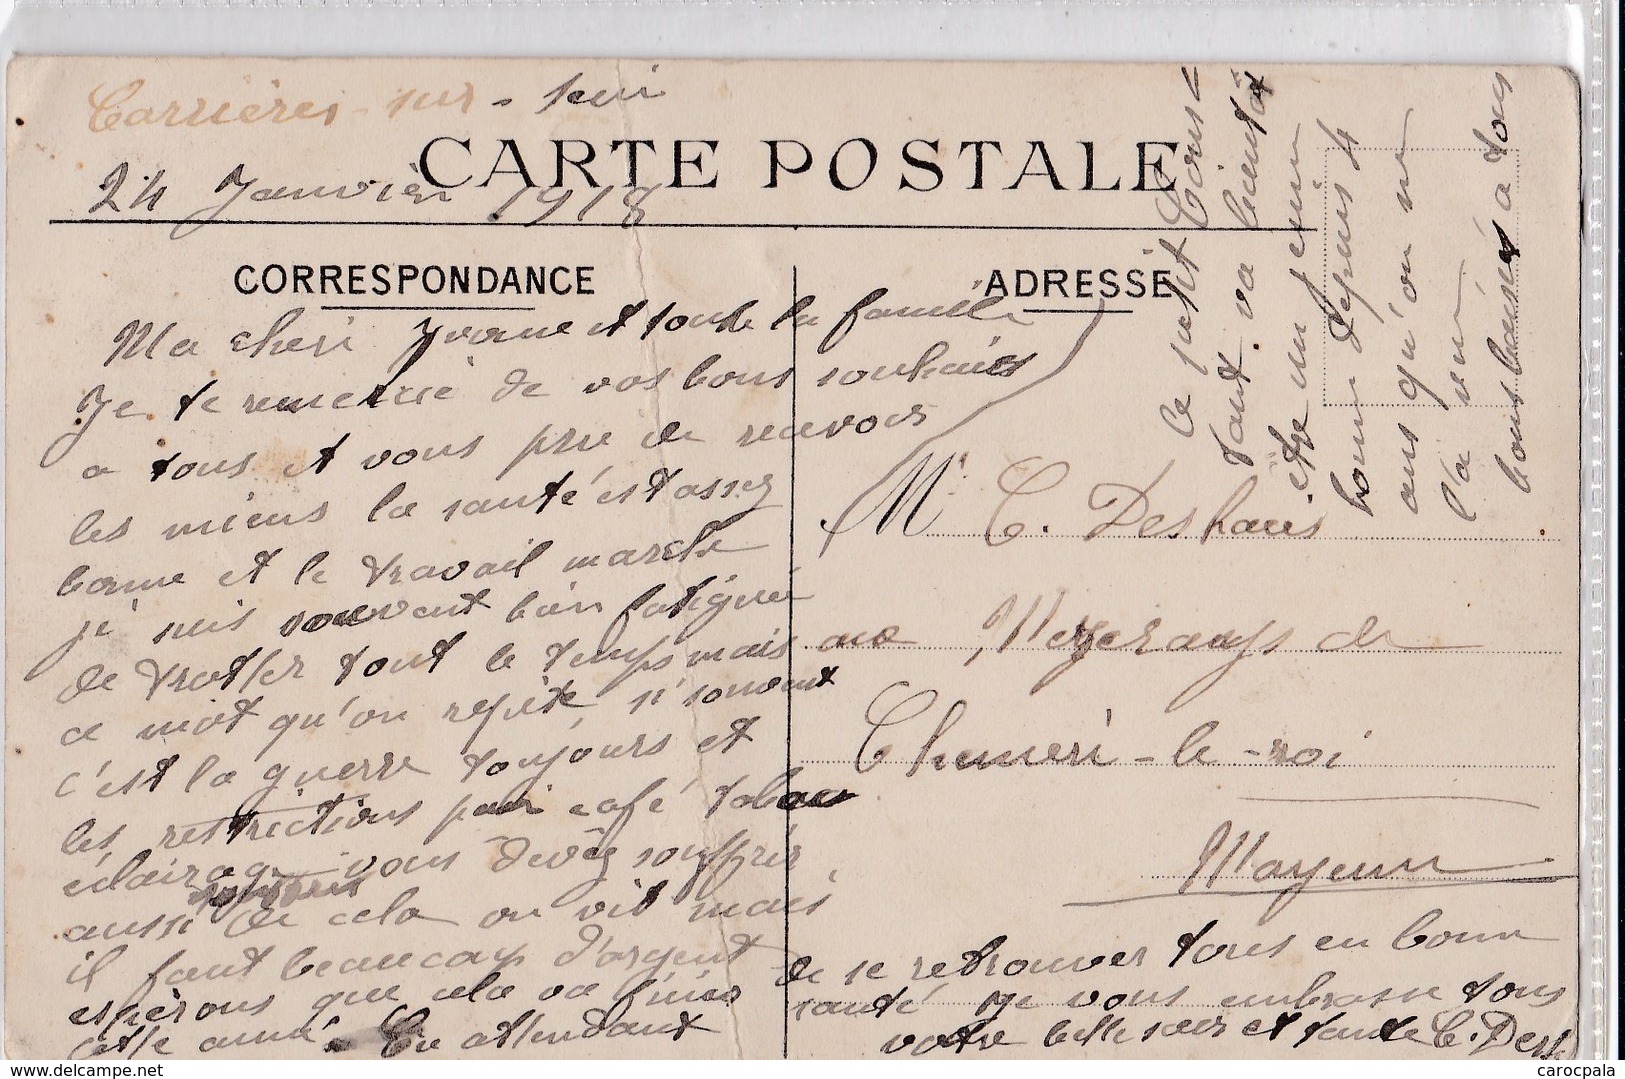 Carrières-sur-seni
CARTE POSTALE
24 Janvièr 1918
CORRESPONDANCE
ADRESSE
Ma cheri Yvonne et toute la famille
Je te remercie de vos bons souhaits
a tous et vous prie de recevoir
les miens la santé est assez
bonne et le travail marche
je suis souvent bien fatiguée
de trotter tout le temps mais
ce mot qu'on repète si souvent
c'est la guerre toujours et
les restrictions pain café tabac
éclairage vous devez souffrir
aussi de cela on vit mais
il faut beaucoup d'argent
espèrons que cela va finir
cette année. En attendant
de se retrouver tous en bonne
santé je vous embrasse tous
votre belle sœur et tante C. Desh
Mr C. Deshais
aux Mezerays de
Chemeré-le-roi
Mayenne
Ce petit
tant va bientôt
être un
homme depuis 4
ans qu'on ne
l'a venu
bons baisers a tous
carocpala